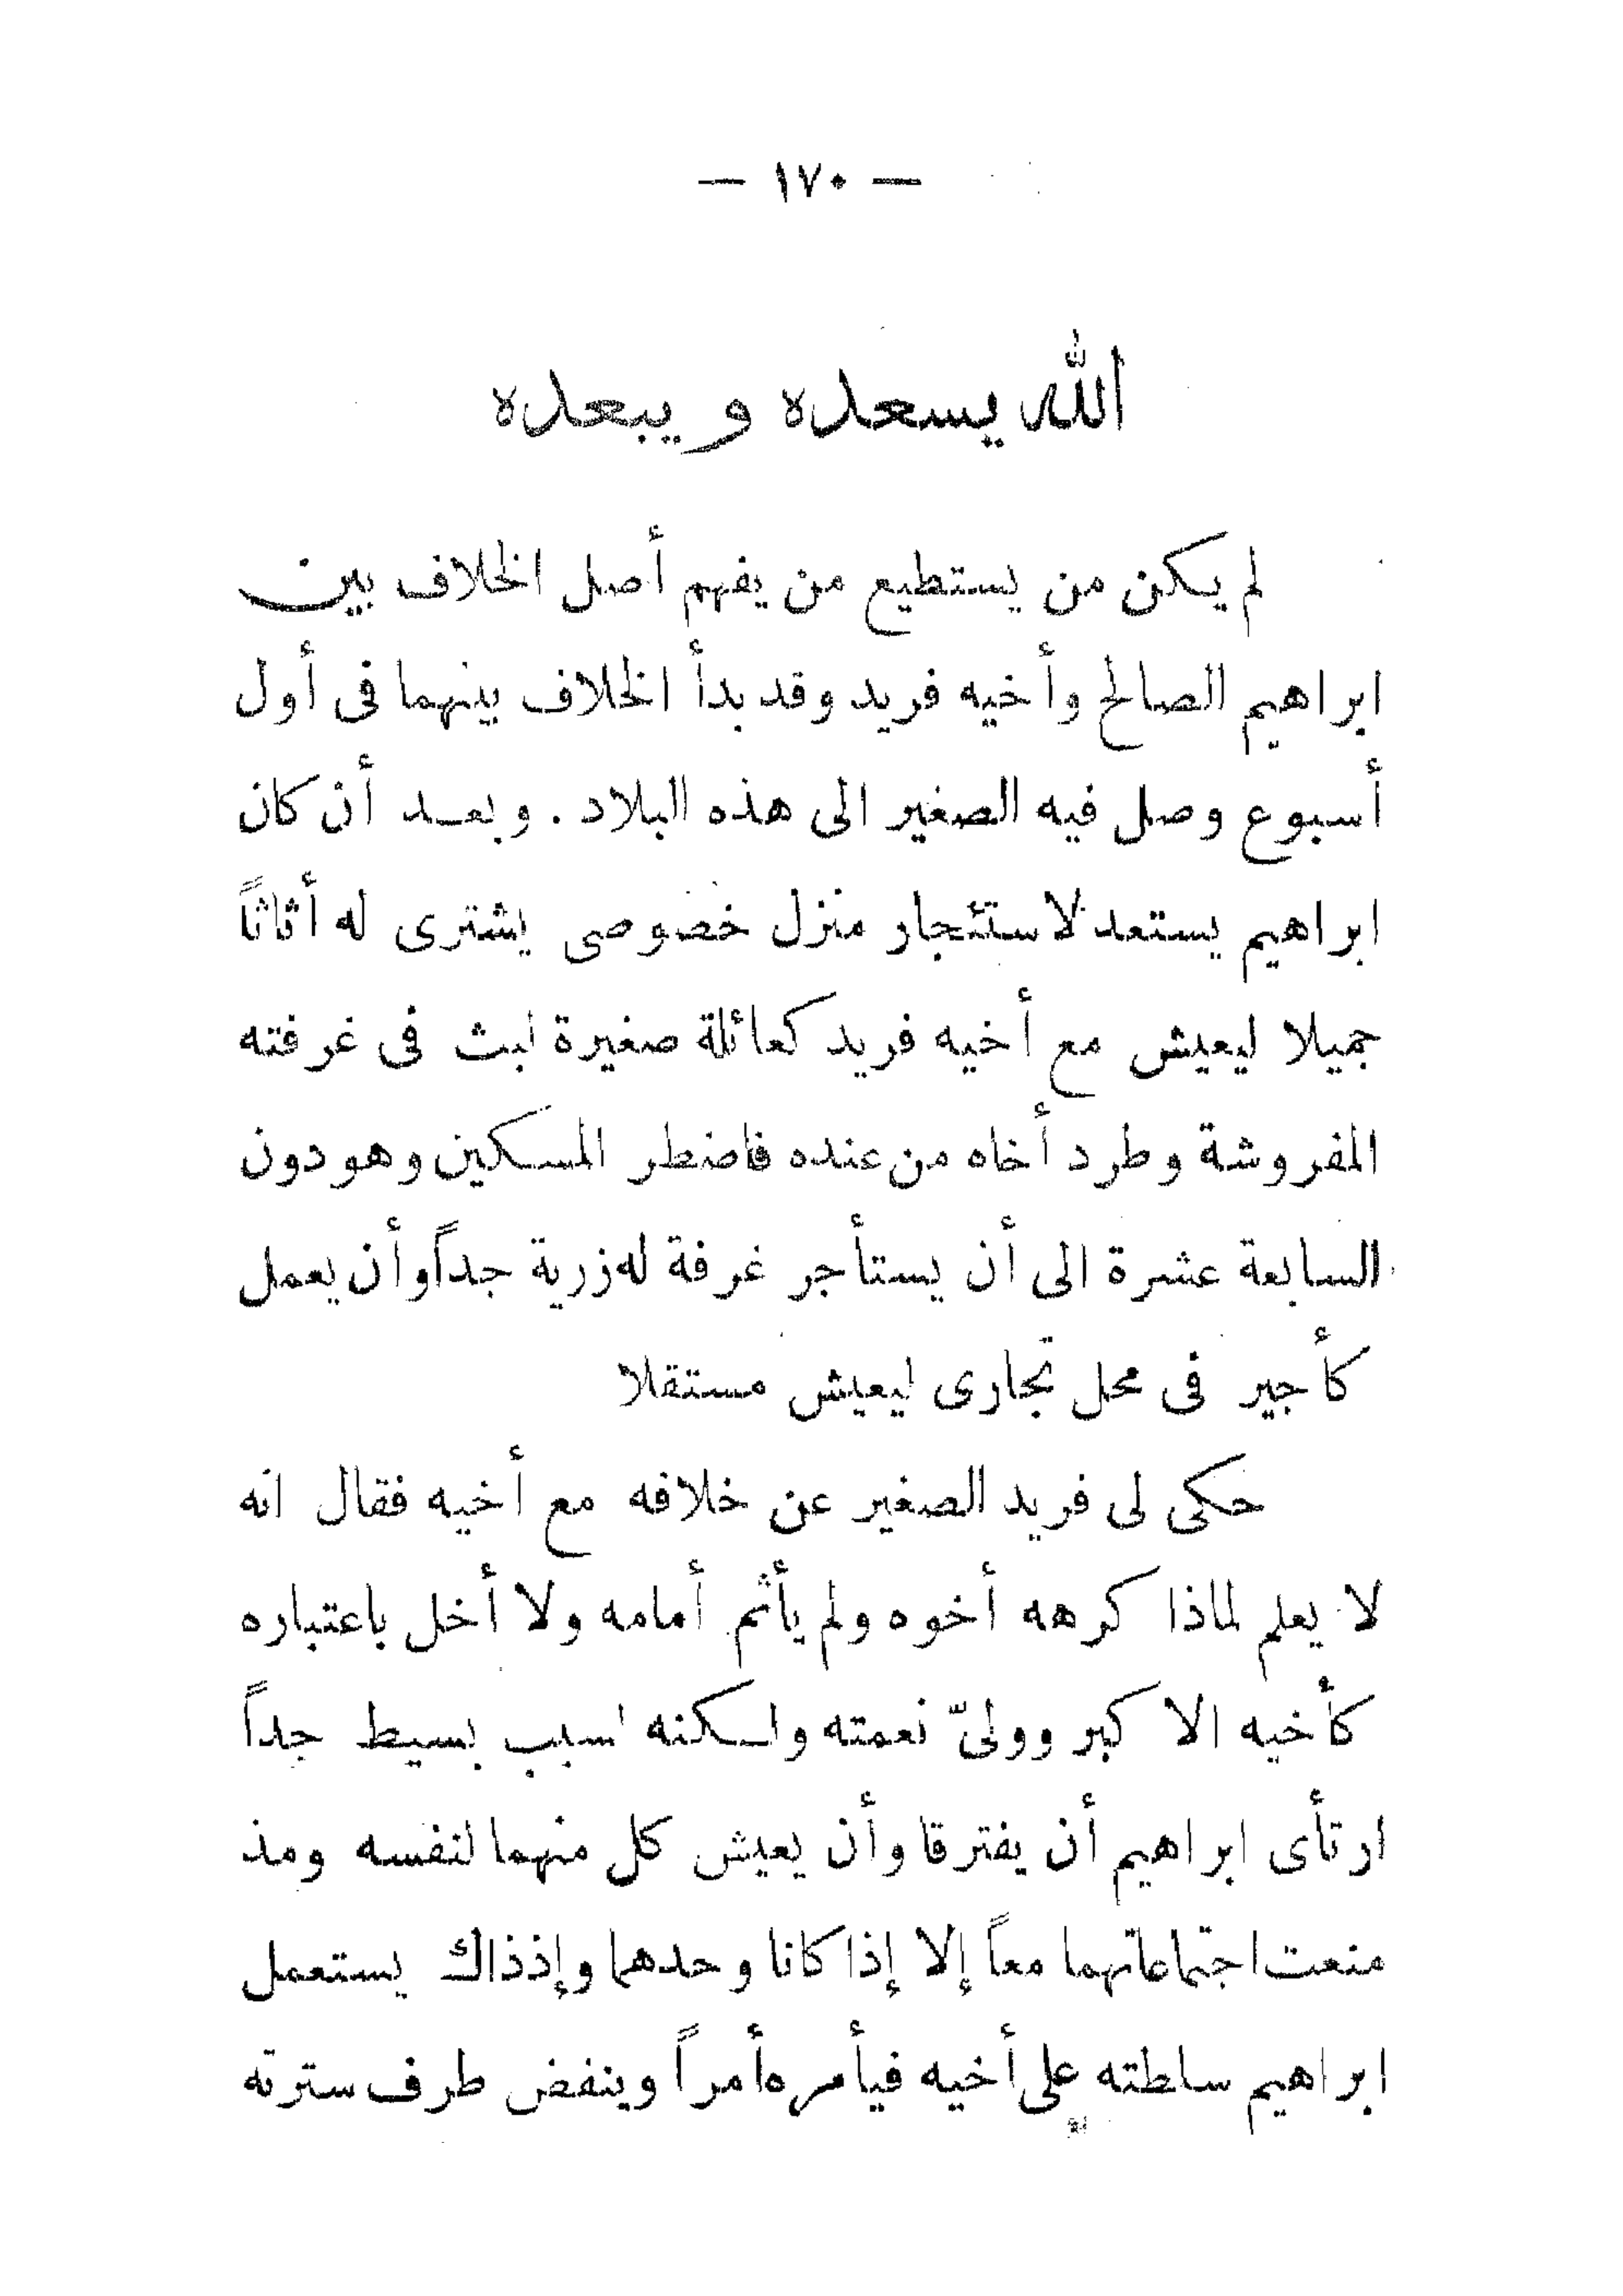 — ١٧٠ —
الله يسعده ويبعده
لم يكن من يستطيع من يفهم أصل الخلاف بين
ابراهيم الصالح وأخيه فريد وقد بدأ الخلاف بينهما فى أول
أسبوع وصل فيه الصغير الى هذه البلاد . وبعد أن كان
ابراهيم يستعد لاستئجار منزل خصوصى يشترى له أثاثاً
جميلا ليعيش مع أخيه فريد كعائلة صغيرة لبث فى غرفته
المفروشة وطرد أخاه من عنده فاضطر المسكين وهو دون
السابعة عشرة الى أن يستأجر غرفة له زرية جداً وأن يعمل
كأجير فى محل تجارى ليعيش مستقلا
حكى لى فريد الصغير عن خلافه مع أخيه فقال انه
لا يعلم لماذا كرهه أخوه ولم يأثم أمامه ولا أخل باعتباره
كأخيه الاكبر وولىّ نعمته ولكنه لسبب بسيط جداً
ارتأى ابراهيم أن يفترقا وأن يعيش كل منهما لنفسه ومذ
منعت اجتماعاتهما معاً إلا إذا كانا وحدهما وإذذاك يستعمل
ابراهيم سلطته على أخيه فيأمره أمراً وينفض طرف سترته